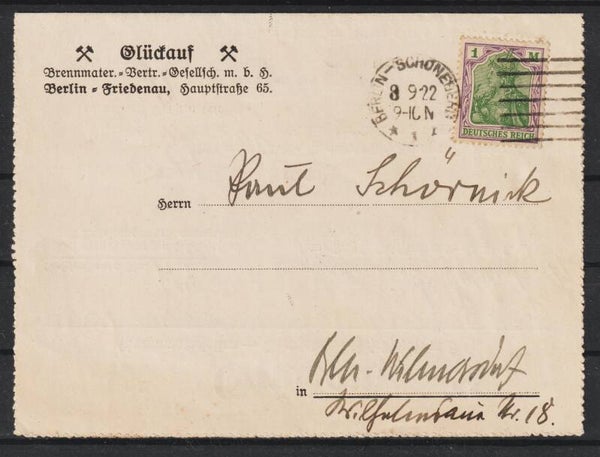 ⚒ Glückauf ⚒
Brennmater.-Vertr.-Gesellsch. m. b. H.
Berlin-Friedenau, Hauptstraße 65.
BERLIN-SCHÖNEBERG
8 9.22
9-10 N
1 M
DEUTSCHES REICH
Herrn Paul Schörnick
in Bln-Wilmersdorf
Wilhelmsaue Nr. 18.